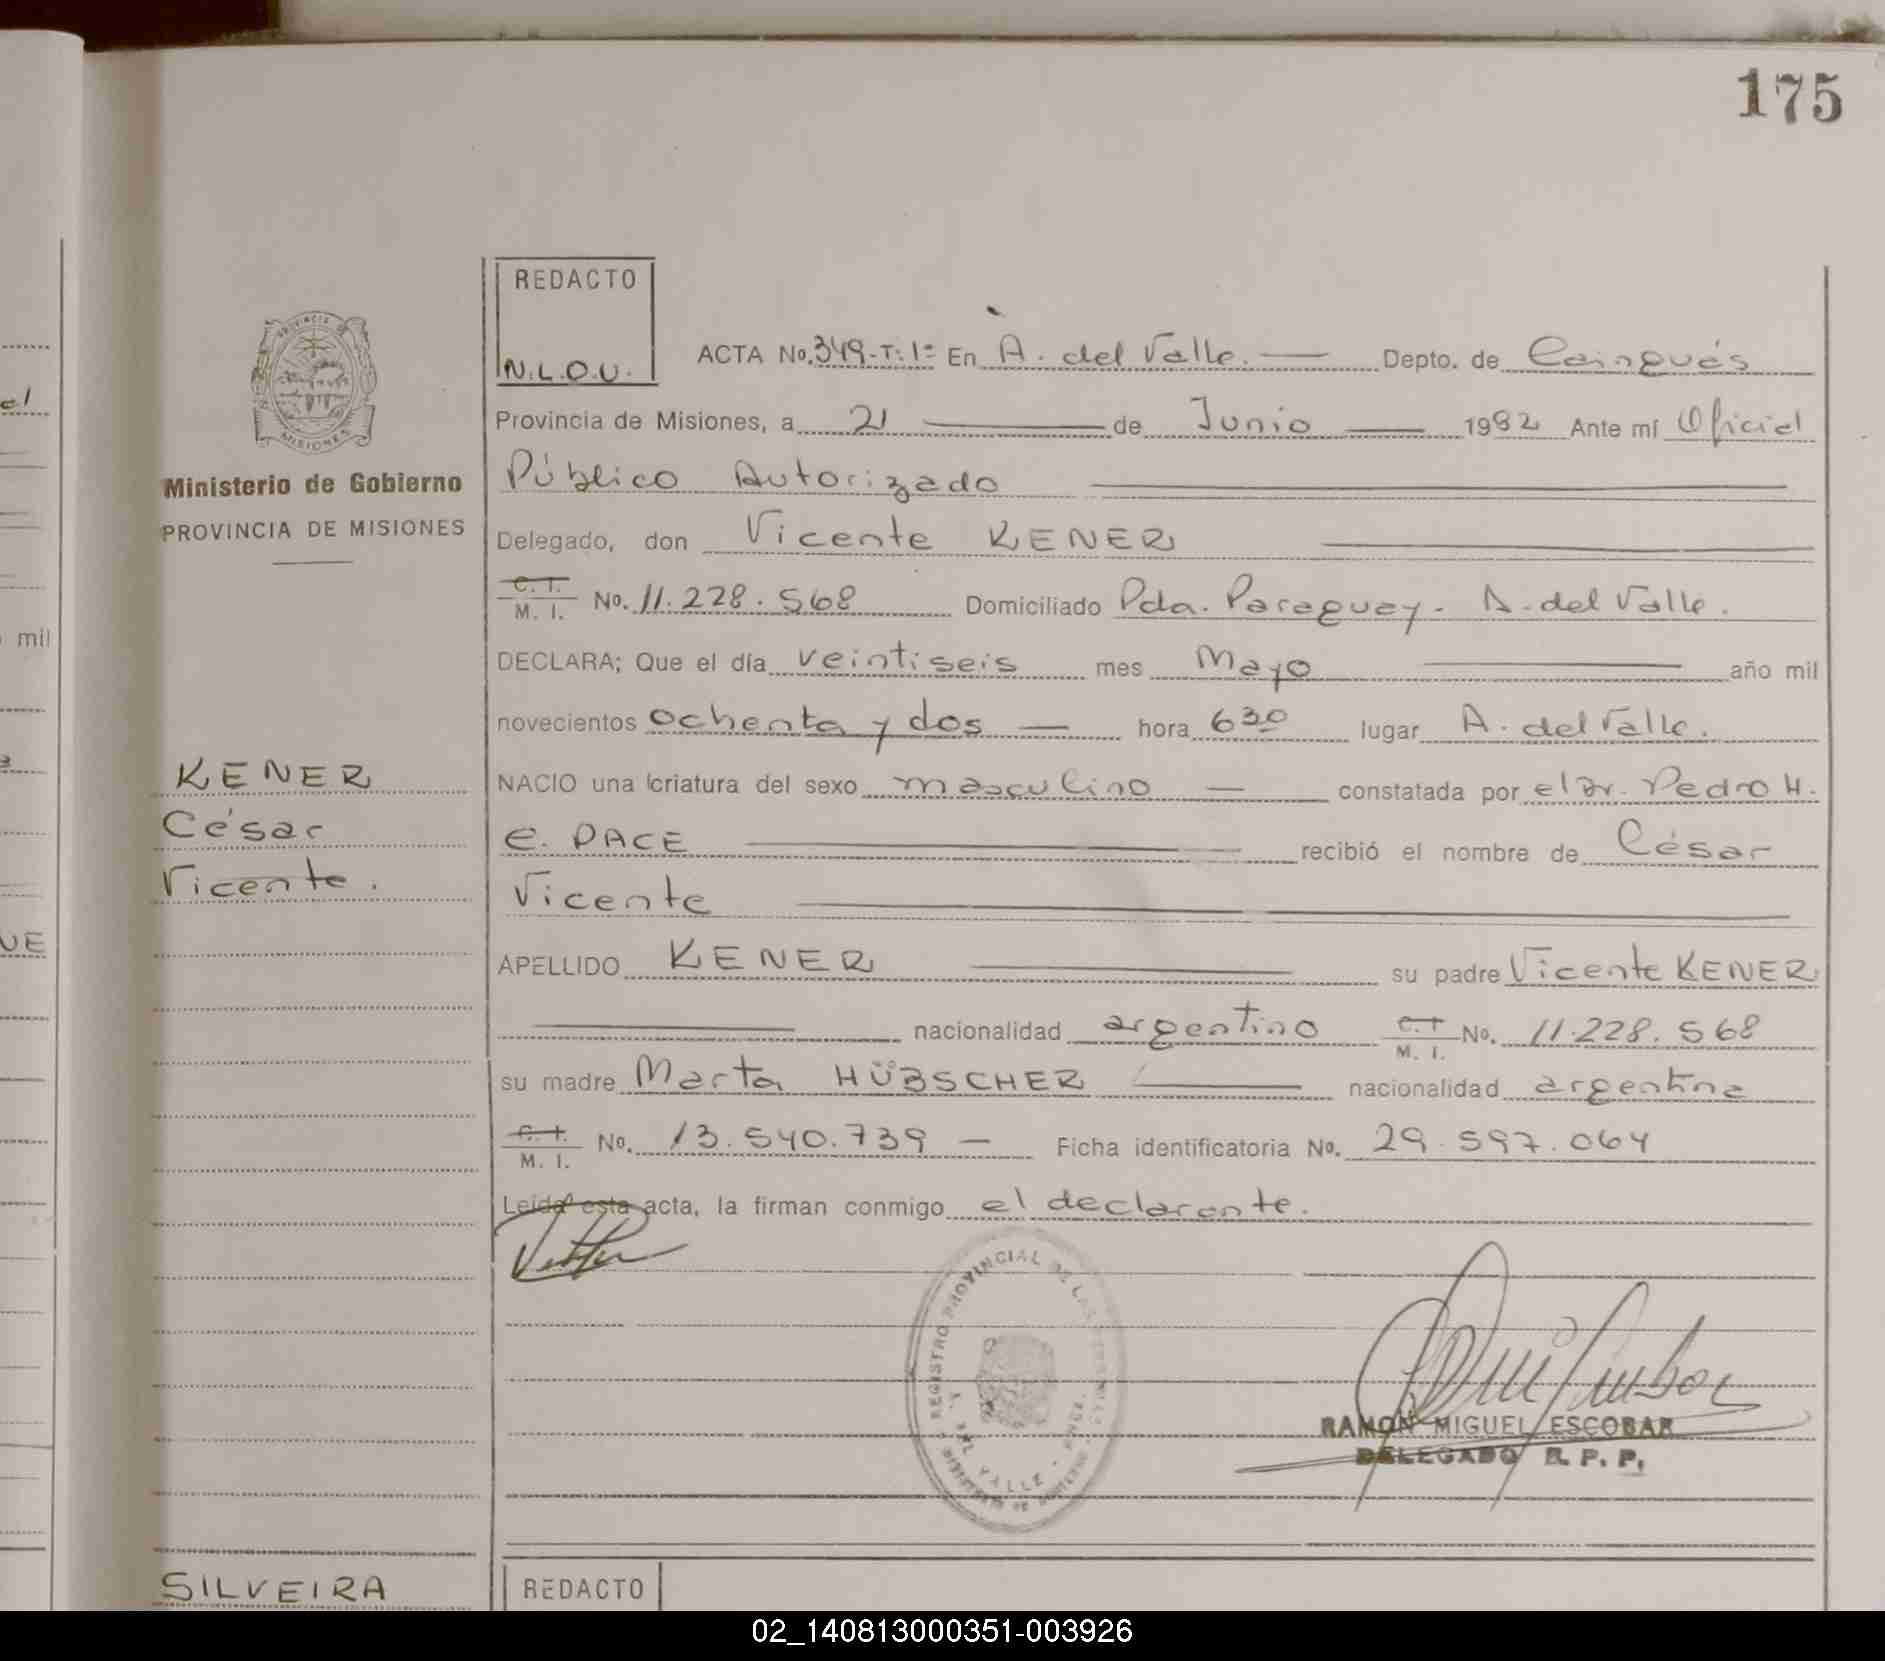 175
REDACTO
N.L.O.U.
PROVINCIA DE
MISIONES
Ministerio de Gobierno
PROVINCIA DE MISIONES
KENER
César
Vicente.
ACTA No. 349-T:1º En A. del Valle. Depto. de Cainguás
Provincia de Misiones, a 21 de Junio 1982 Ante mí Oficial
Público Autorizado
Delegado, don Vicente KENER
C. I.
M. I. No. 11.228.568 Domiciliado Pda. Paraguay. A. del Valle.
DECLARA; Que el día veintiseis mes Mayo año mil
novecientos ochenta y dos hora 630 lugar A. del Valle.
NACIO una criatura del sexo masculino constatada por el Dr. Pedro H.
E. PACE recibió el nombre de César
Vicente
APELLIDO KENER su padre Vicente KENER
nacionalidad argentino C. I.
M. I. No. 11.228.568
su madre Marta HÜBSCHER nacionalidad argentina
C. I.
M. I. No. 13.540.739 Ficha identificatoria No. 29.597.064
Leída esta acta, la firman conmigo el declarante.
REGISTRO PROVINCIAL DE LAS PERSONAS
A. DEL VALLE
RAMON MIGUEL ESCOBAR
DELEGADO R. P. P.
SILVEIRA
REDACTO
el
mil
UE
02_140813000351-003926